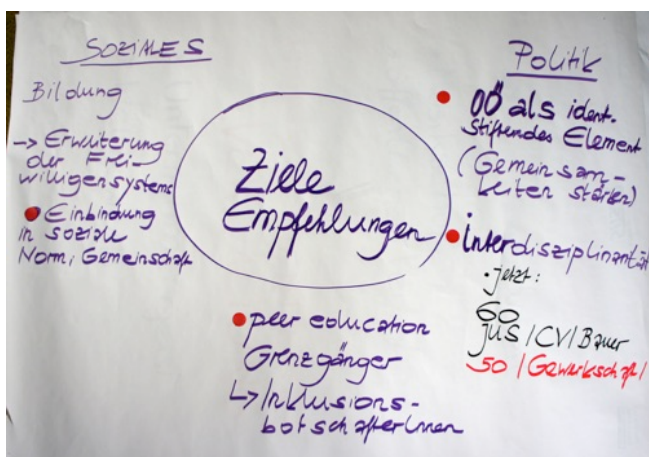 SOZIALES
Bildung
-> Erweiterung
der Frei-
willigensystems
Einbindung
in soziale
Norm, Gemeinschaft
Ziele
Empfehlungen
peer education
Grenzgänger
↳ Inklusions-
botschafterInnen
Politik
OÖ als ident.
stiftendes Element
(Gemeinsam-
keiten stärken)
interdisziplinarität
• jetzt:
60
jus / CV / Bauer
50 / Gewerkschaft /